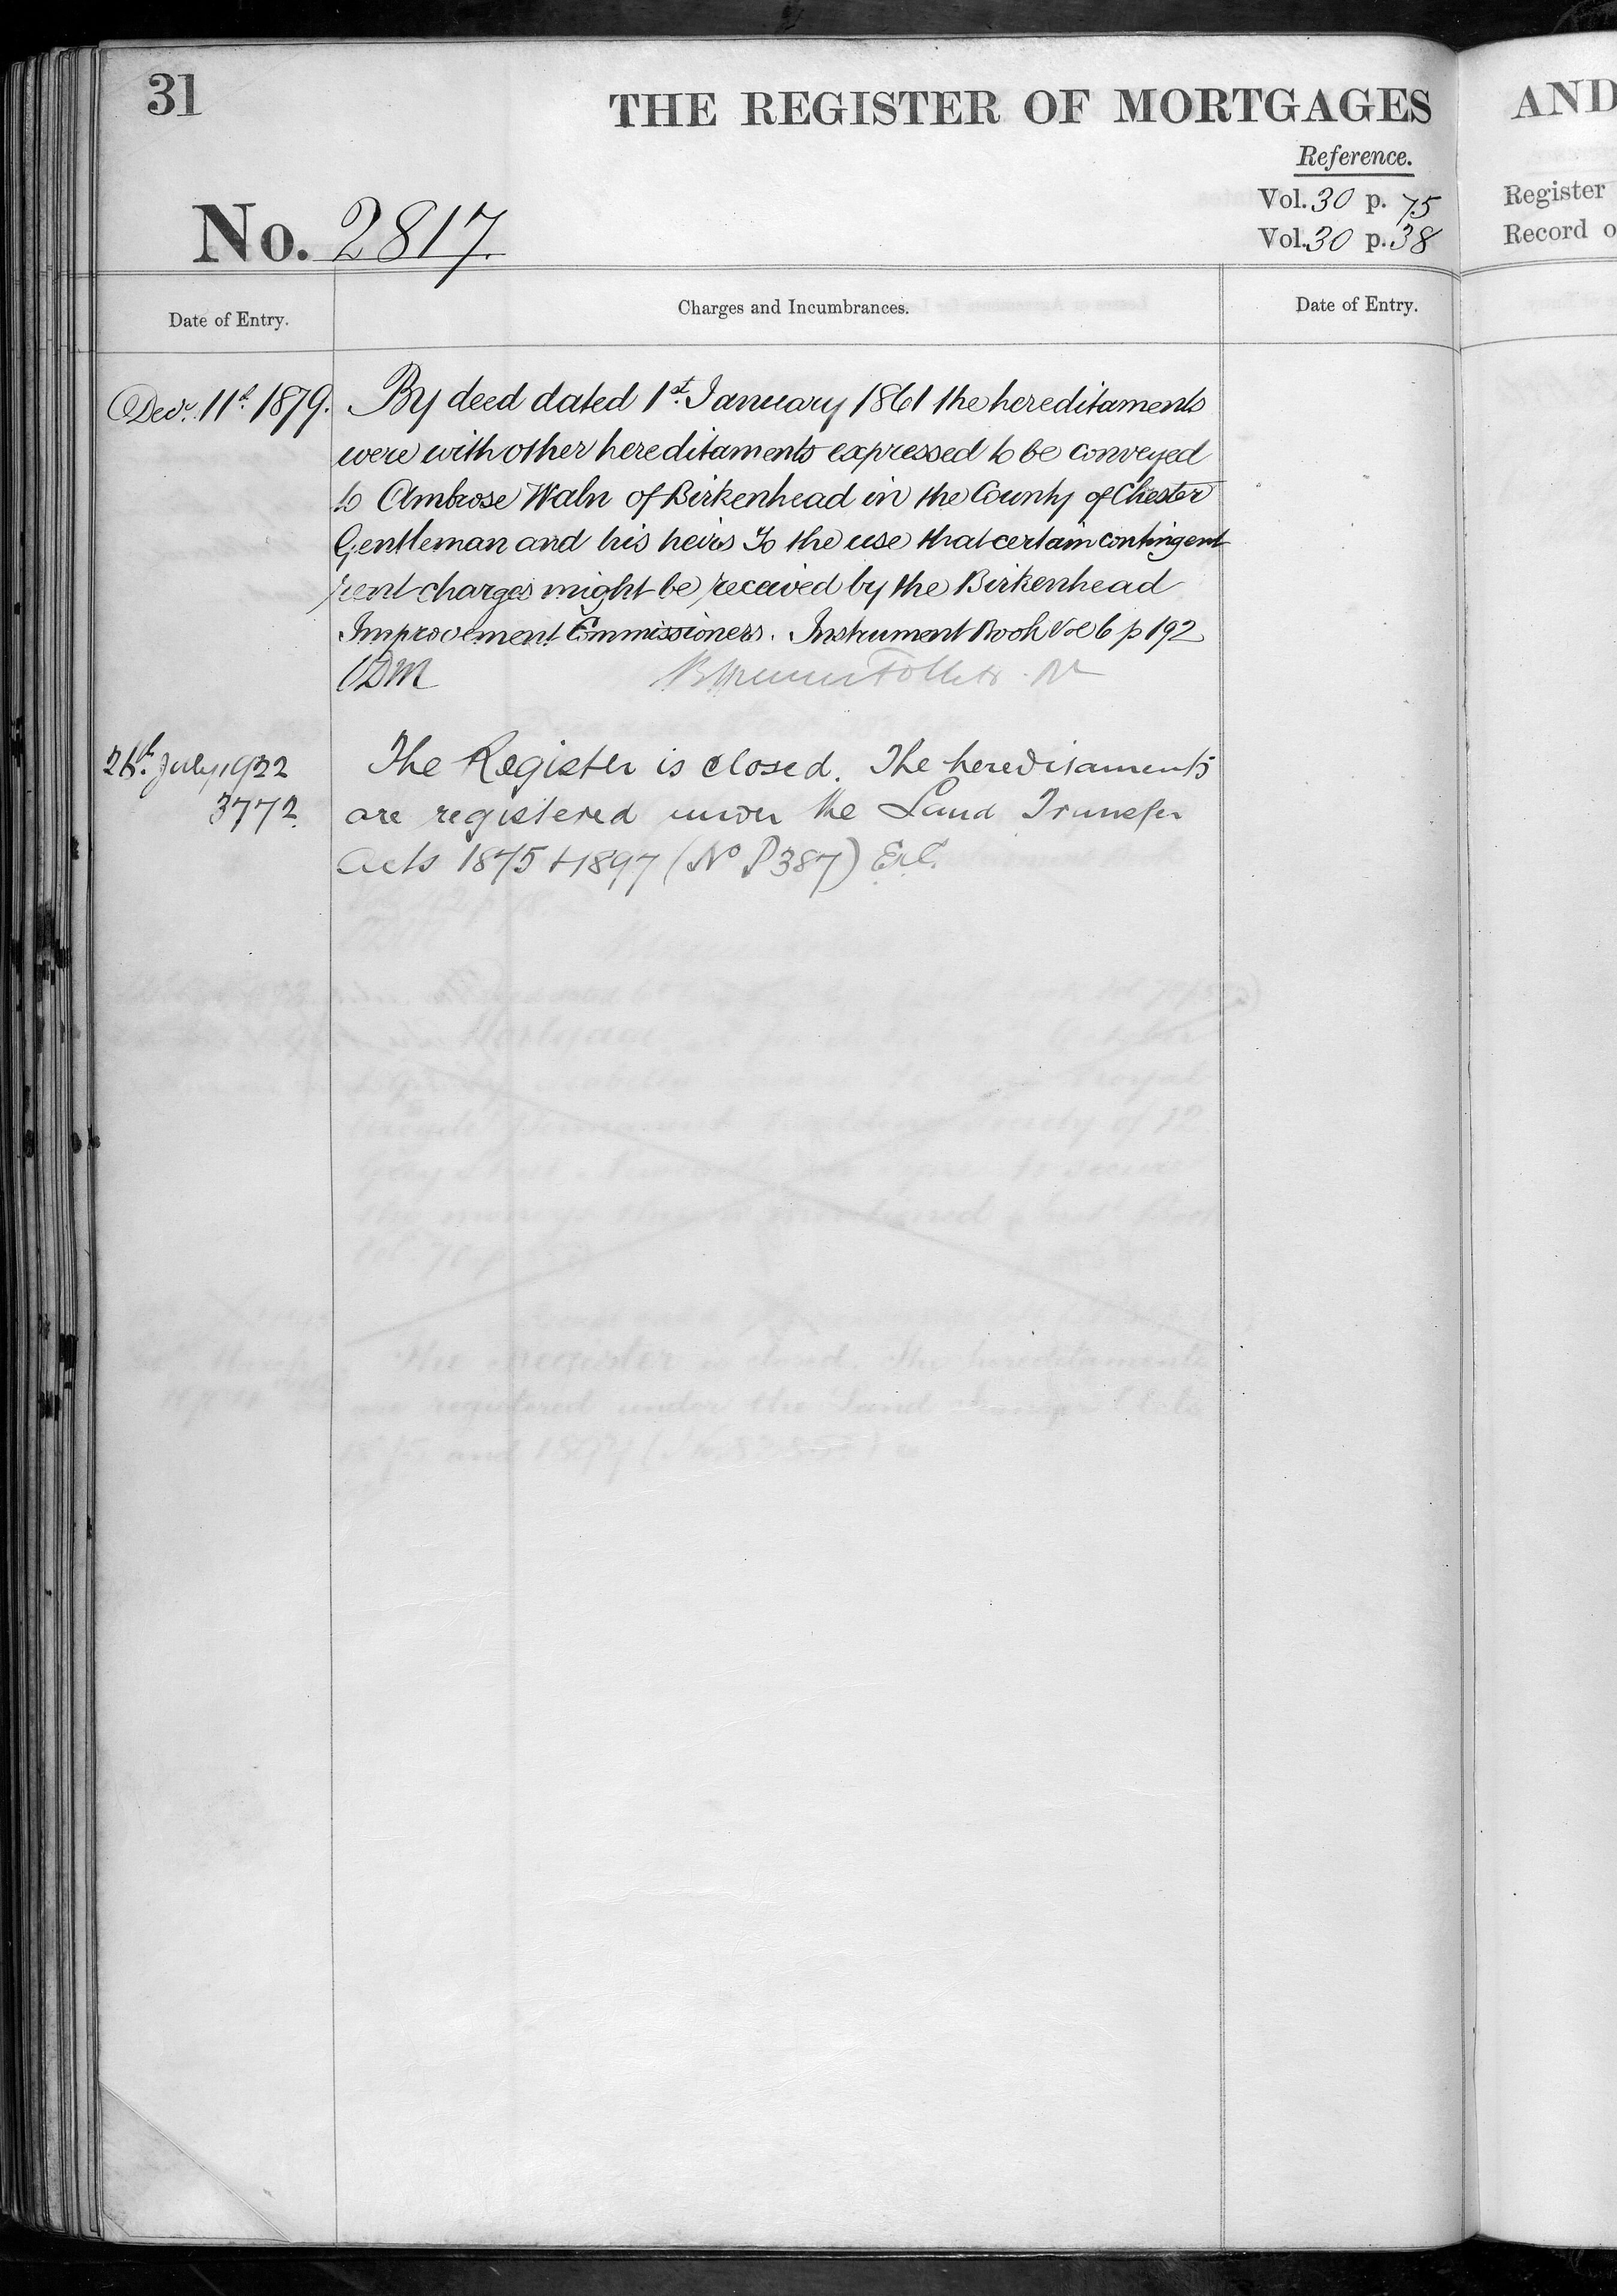 31
THE REGISTER OF MORTGAGES
AND
Reference.
Vol. 30 p. 75
Vol. 30 p. 38
Register
Record o
No. 2817.
Date of Entry.
Charges and Incumbrances.
Date of Entry.
Decr. 11th 1879.
By deed dated 1st January 1861 the hereditaments
were with other hereditaments expressed to be conveyed
to Ambrose Waln of Birkenhead in the County of Chester
Gentleman and his heirs To the use that certain contingent
rent charges might be received by the Birkenhead
Improvement Commissioners. Instrument Book Vol 6 p 192
ODM
July 1922
3772.
The Register is closed. The hereditaments
are registered under the Land Transfer
Acts 1875 + 1897 (No P387)